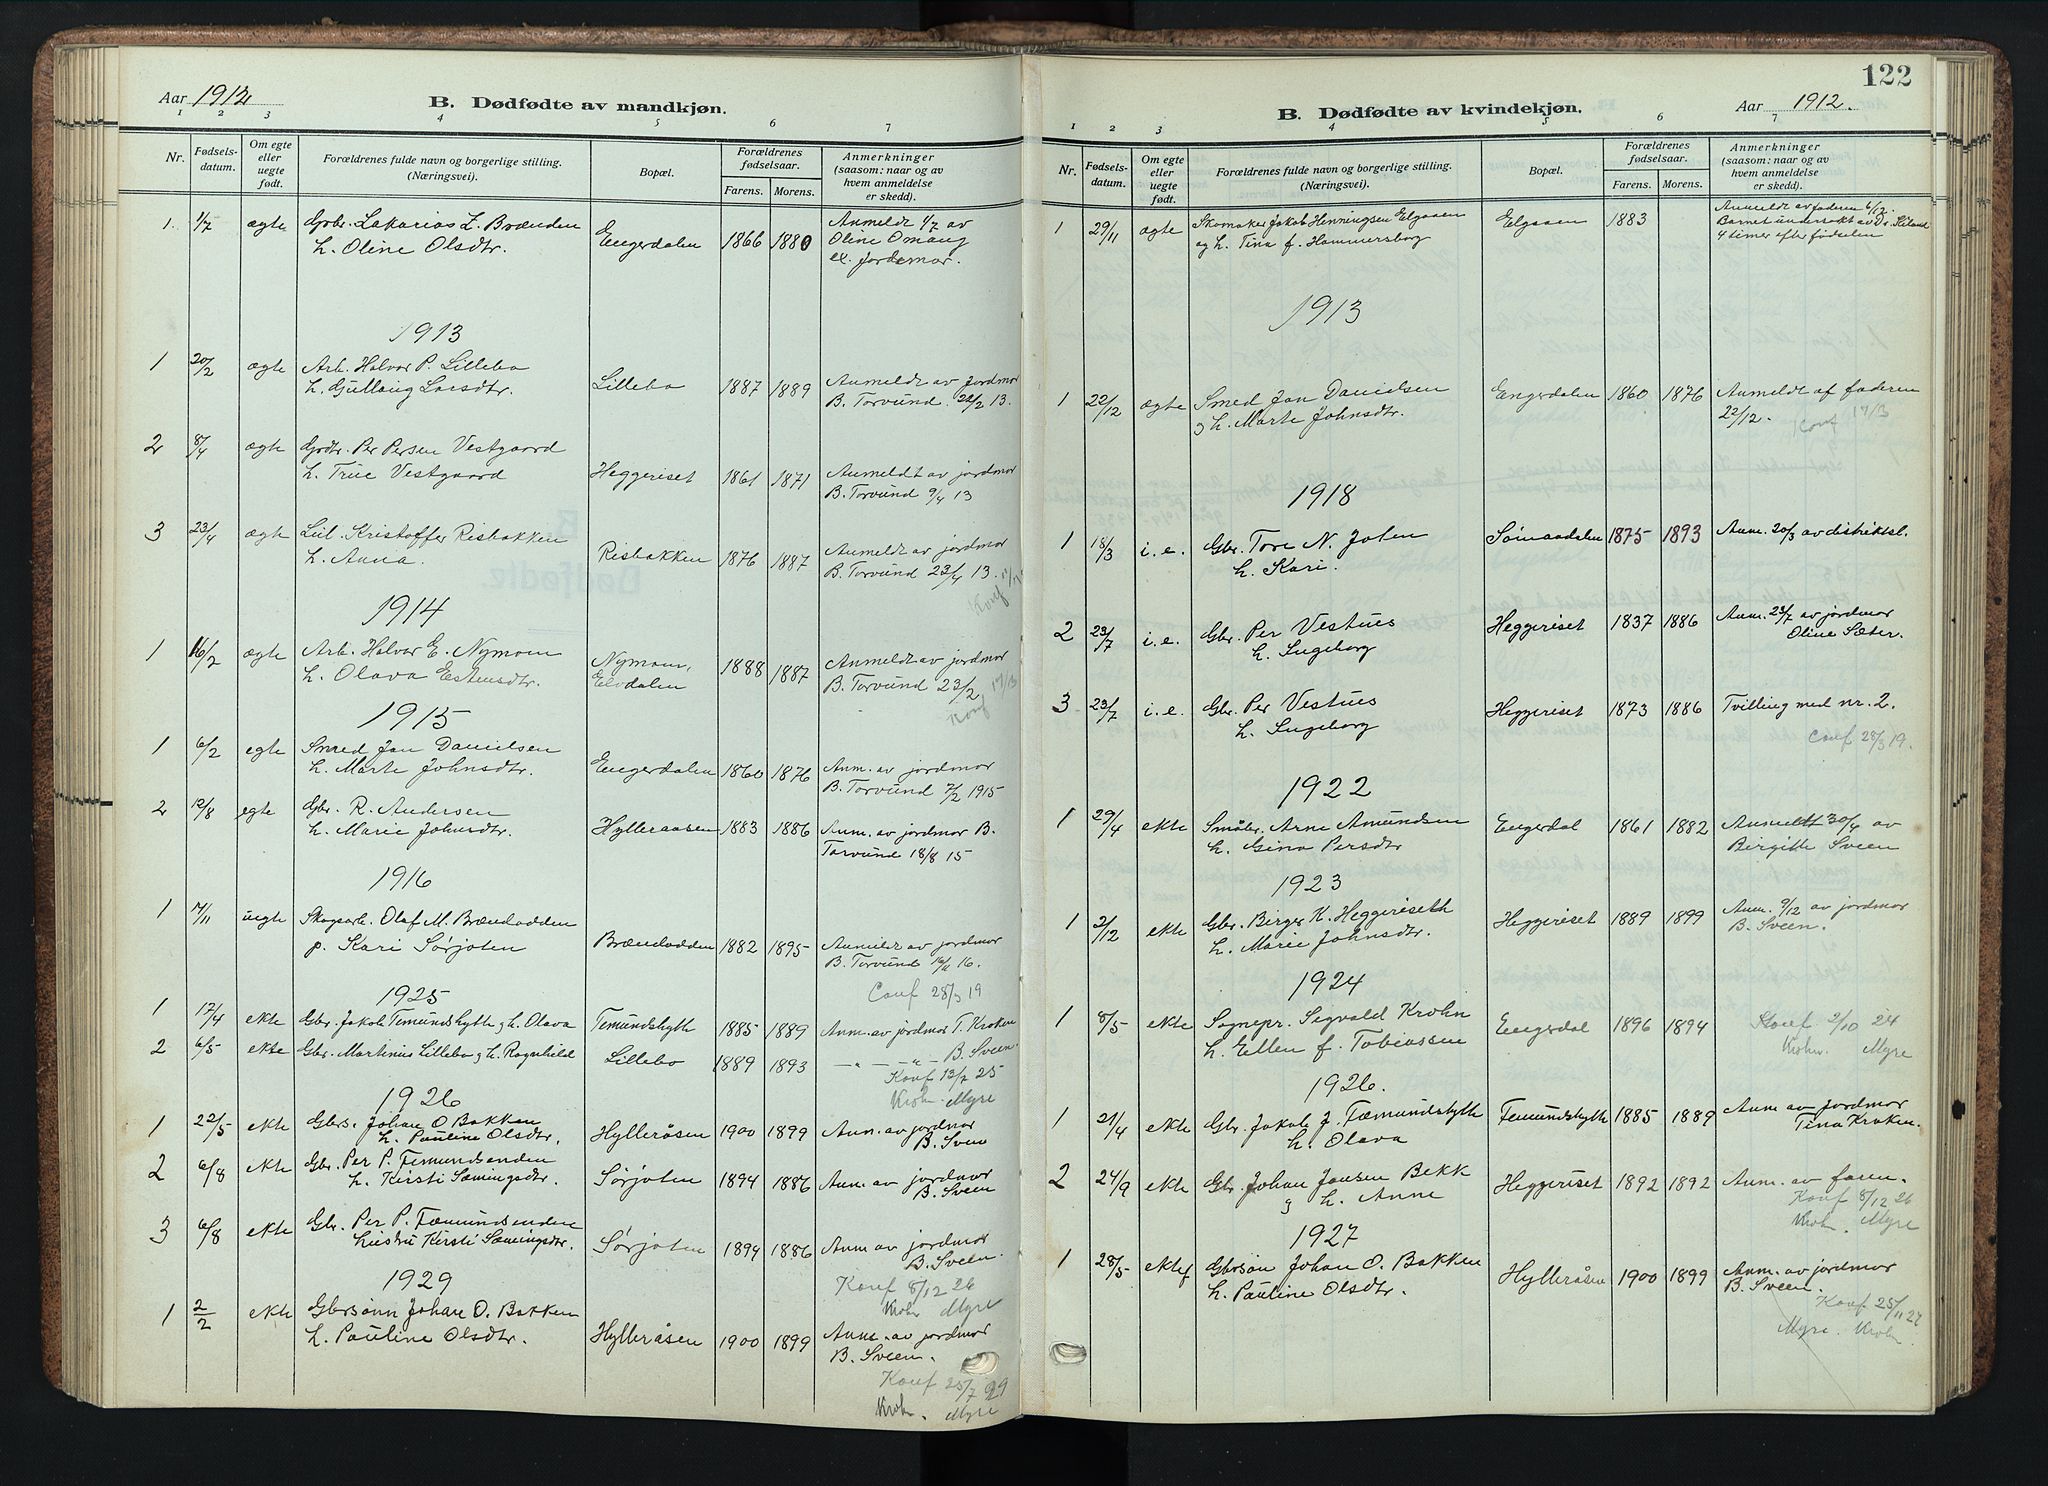 Aar 1912
B. Dødfødte av mandkjøn.
1 2 3 4 5 6 7
Nr. Fødsels-datum. Om egte eller uegte født. Forældrenes fulde navn og borgerlige stilling. (Næringsvei). Bopæl. Forældrenes fødselsaar. Farens. Morens. Anmerkninger (saasom: naar og av hvem anmeldelse er skedd).
1 1/7 ægte Gbr. Zakarias L. Brænden Engerdalen 1866 1880 Anmeldt 1/7 av
h. Oline Olsdtr. Oline Omang
ex. jordemor.
1913
1 20/2 ægte Arb. Halvor P. Lillebo Lillebo 1887 1889 Anmeldt av Jordmor
h. Gulloug Larsdtr. B. Torvund 22/2 13.
2 8/4 ægte Per Persen Vestgaard Heggeriset 1861 1871 Anmeldt av jordmor
h. True Vestgaard B. Torvund 9/4 13
3 23/4 ægte Kristoffer Risbakken Risbakken 1876 1887 Anmeldt av jordmor
h. Anna. B. Torvund 23/4 13.
Konf
1914
1 16/2 ægte Arb. Halvor E. Nymoen Nymoen, 1888 1887 Anmeldt av jordmor
h. Olava Estensdtr. Elvdalen B. Torvund 23/2
Konf 17/3
1915
1 6/2 egte Smed Jan Danielsen Engerdalen 1860 1876 Anm. av jordmor
h. Marte Johnsdtr. B. Torvund 7/2 1915
2 12/8 egte Gbr. R. Andersen Hylleraasen 1883 1886 Anm. av jordmor B.
h. Marie Johnsdtr. Torvund 18/8 15
1916
1 14/11 uegte Skogsarb. Olaf M. Brændodden Brændodden 1882 1895 Anmeldt av jordmor
p. Kari Sørjoten B. Torvund 16/11 16.
Conf 28/3 19
1925
1 17/4 ekte Gbr. Jakob Femundshytte og h. Olava Femundshytte 1885 1889 Anm. av jordmor T. Kroken
2 6/5 ekte Gbr. Martinus Lillebo og h. Ragnhild Lillebo 1889 1893 — " — " B. Sveen.
Konf 13/7 25
Krohn Myre
1926
1 22/5 ekte Gbrs. Johan O Bakken Hylleråsen 1900 1899 Anm. av jordmor
h. Pauline Olsdtr. B. Sveen
2 6/8 ekte Gbr. Per P. Femundsenden Sørjoten 1894 1886 Anm. av jordmor
h. Kirsti Sæmingsdtr. B. Sveen
3 6/8 ekte Gbr. Per P. Fæmundsenden Sørjoten 1894 1886 Anm av jordmor
hustru Kirsti Sæmingsdtr. B. Sveen.
Konf 8/12 26
Krohn Myre
1929
1 2/2 ekte Gbrsønn Johan O. Bakken Hylleråsen 1900 1899 Anm. av jordmor
h. Pauline Olsdtr. B. Sveen.
Konf 25/7 29
Krohn. Myre
122
B. Dødfødte av kvindekjøn.
Aar 1912.
1 2 3 4 5 6 7
Nr. Fødsels-datum. Om egte eller uegte født. Forældrenes fulde navn og borgerlige stilling. (Næringsvei). Bopæl. Forældrenes fødselsaar. Farens. Morens. Anmerkninger (saasom: naar og av hvem anmeldelse er skedd).
1 29/11 ægte Skomaker Jakob Henningsen Elgaaen Elgaaen 1883 Anmeldt av faderen 6/12
og h. Tina f. Hammersborg Barnet undersøkt av Dr. Kiland
4 timer efter fødselen
1913
1 22/12 ægte Smed Jan Danielsen Engerdalen 1860 1876 Anmeldt af faderen
og h. Marte Johnsdtr. 22/12.
Konf 17/3
1918
1 18/3 i.e. Gbr. Tore N. Joten Sømaadalen 1875 1893 Anm. 20/3 av distriktsl.
h. Kari.
2 23/7 i.e. Gbr. Per Vestues Heggeriset 1837 1886 Anm. 23/7 av jordmor
h. Ingeborg Oline Sæter.
3 23/7 i.e. Gbr. Per Vestues Heggeriset 1873 1886 Tvilling med nr. 2.
h. Ingeborg Conf 28/3 19.
1922
1 29/4 ekte Småbr. Arne Amundsen Engerdal 1861 1882 Anmeldt 30/4 av
h. Gina Persdtr Birgitte Sveen
1923
1 2/12 ekte Gbr. Birger K. Heggeriseth Heggeriset 1889 1899 Anm. 9/12 av jordmor
h. Marie Johnsdtr. B. Sveen.
1924
1 8/5 ekte Sognepr. Sigvald Krohn Engerdal 1896 1894 Konf 2/10 24
h. Ellen f. Tobiassen Krohn. Myre
1926.
1 21/4 ekte Gbr. Jakob J. Fæmundshytte Femundshytte 1885 1889 Anm av jordmor
h. Olava Tina Kroken.
2 24/9 ekte Gbr. Johan Jansen Bekk Heggeriset 1892 1892 Anm. av faren.
og h. Anne Konf 8/12 26
Krohn Myre
1927
1 28/5 ektef Gbrsøn Johan O. Bakken Hylleråsen 1900 1899 Anm. av jordmor
h. Pauline Olsdtr. B. Sveen.
Konf 25/11 27
Myre. Krohn